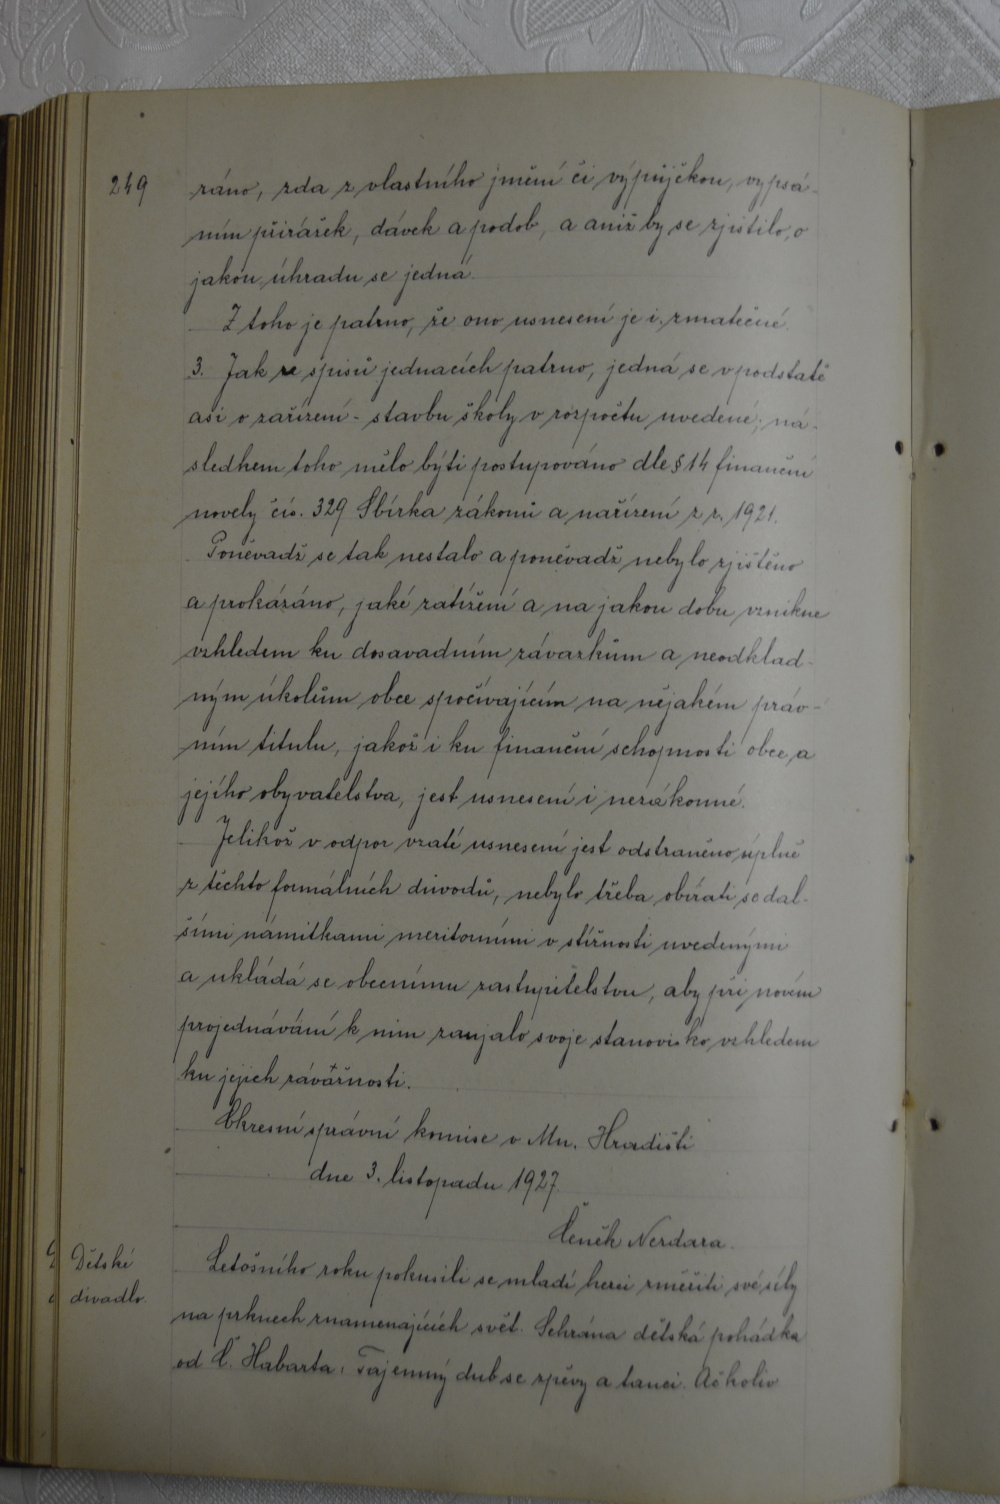 249
ráno, zda z vlastního jmění či výpůjčkou, vypsá-
ním přirážek, dávek a podob, a aniž by se zjistilo, o
jakou úhradu se jedná.
Z toho je patrno, že ono usnesení je i zmatečné.
3. Jak ze spisů jednacích patrno, jedná se v podstatě
asi o zařízení - stavbu školy v rozpočtu uvedené; ná-
sledkem toho mělo býti postupováno dle § 14 finanční
novely čís. 329 Sbírka zákonů a nařízení z r. 1921.
Poněvadž se tak nestalo a poněvadž nebylo zjištěno
a prokázáno, jaké zatížení a na jakou dobu vznikne
vzhledem ku dosavadním závazkům a neodklad-
ným úkolům obce spočívajícím na nějakém práv-
ním titulu, jakož i ku finanční schopnosti obce a
jejího obyvatelstva, jest usnesení i nezákonné.
Jelikož v odpor vzaté usnesení jest odstraněno úplně
z těchto formálních důvodů, nebylo třeba obírati se dal-
šími námitkami meritorními v stížnosti uvedenými
a ukládá se obecnímu zastupitelstvu, aby při novém
projednávání k nim zaujalo svoje stanovisko vzhledem
ku jejich závážnosti.
Okresní správní komise v Mn. Hradišti
dne 3. listopadu 1927.
Čeněk Nerdara.
Dětské
divadlo.
Letošního roku pokusili se mladí herci změřiti své síly
na prknech znamenajících svět. Sehrána dětská pohádka
od Č. Habarta: Tajemný dub se zpěvy a tanci. Ačkoliv